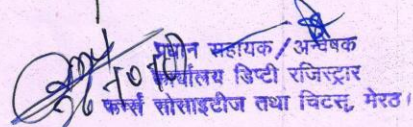 प्रधान सहायक/अन्वेषक
कार्यालय डिप्टी रजिस्ट्रार
फर्म्स सोसाइटीज तथा चिटस्, मेरठ।